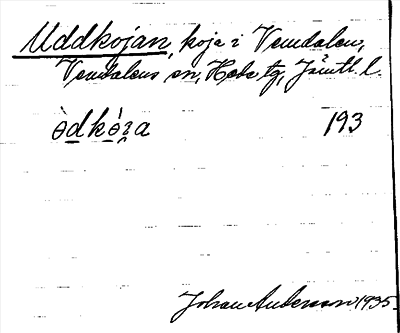 Uddkojan, koja i Vemdalen,
Vemdalens sn, Hede tg, Jämtl. l.
òdkòʒa 193
Johan Anderson 1935.